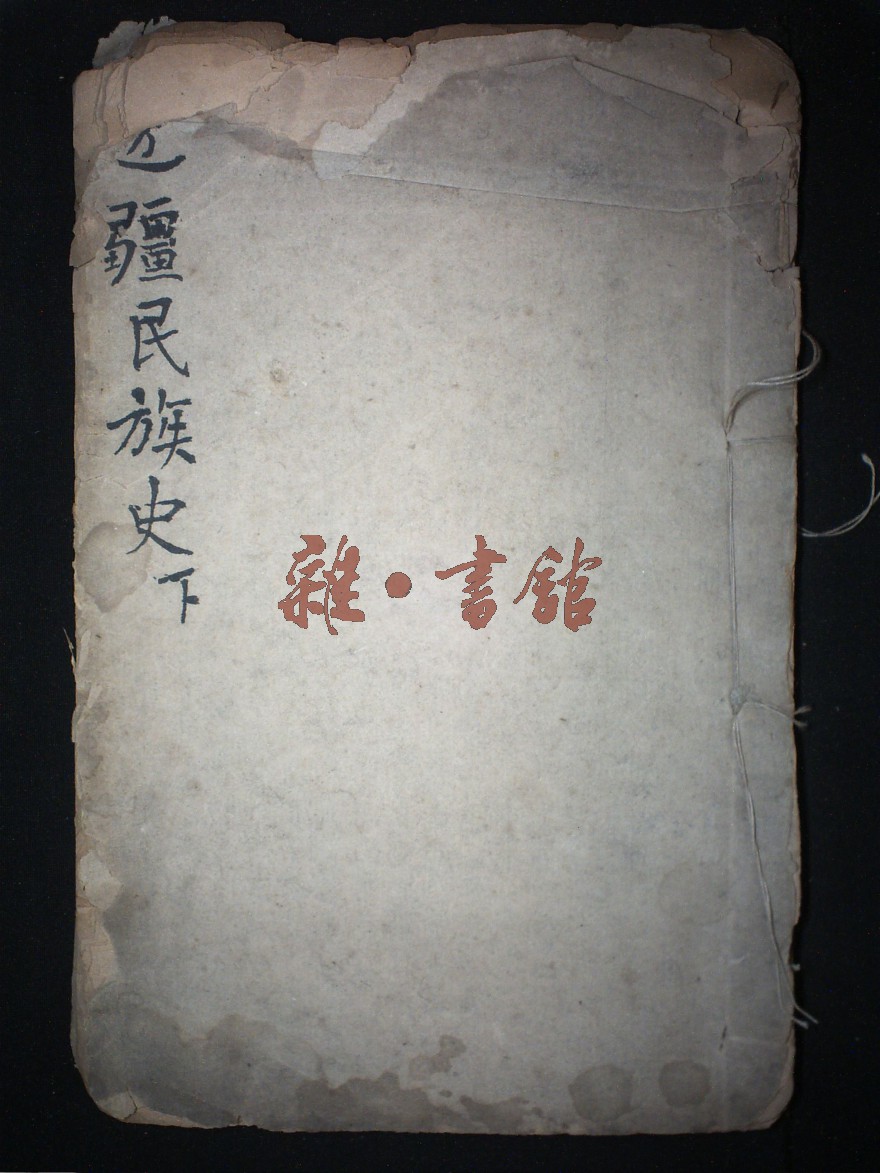 边疆民族史下
雜·書館